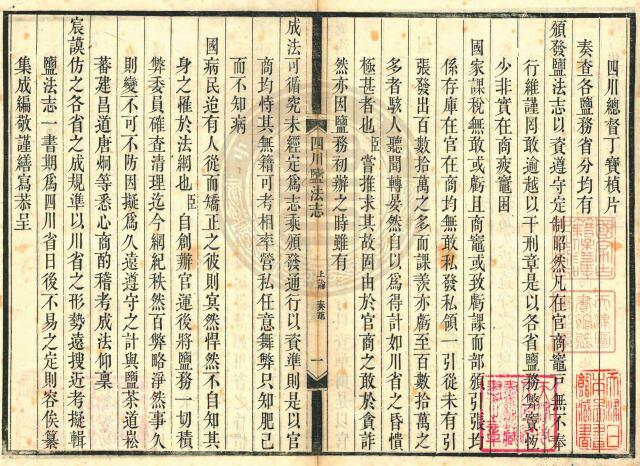 四川總督丁寶楨片
奏查各鹽務省分均有
頒發鹽法志以資遵守定制昭然凡在官商竈戶無不奉
行維謹罔敢逾越以干刑章是以各省鹽務弊竇恆
少非實在商疲竈困
國家課稅無敢或虧且商竈或虧課而部頒引張均
係存庫在官在商均無敢私發私領一引從未有引
張發出百數拾萬之多而課羨亦虧至百數拾萬之
多者駭人聽聞轉晏然自以為得計如川省之昏憒
極甚者也臣嘗推求其故固由於官商之敢於貪詐
然亦因鹽務初辦之時雖有
四川鹽法志
上諭 奏疏
一
成法可循究未經定為志乘頒發通行以資準則是以官
商均恃其無籍可考相率營私任意舞弊只知肥己
而不知病
國病民迨有人從而矯正之彼則冥然悍然不自知其
身之罹於法網也臣自創辦官運後將鹽務一切積
弊委員確查清理迄今綱紀秩然百弊略淨然事久
則變不可不防因擬為久遠遵守之計與鹽茶道崧
蕃建昌道唐炯等悉心商酌稽考成法仰稟
宸謨仿之各省之成規準以川省之形勢遠搜近考擬輯
鹽法志一書期為四川省日後不易之定則容俟纂
集成編敬謹繕寫恭呈